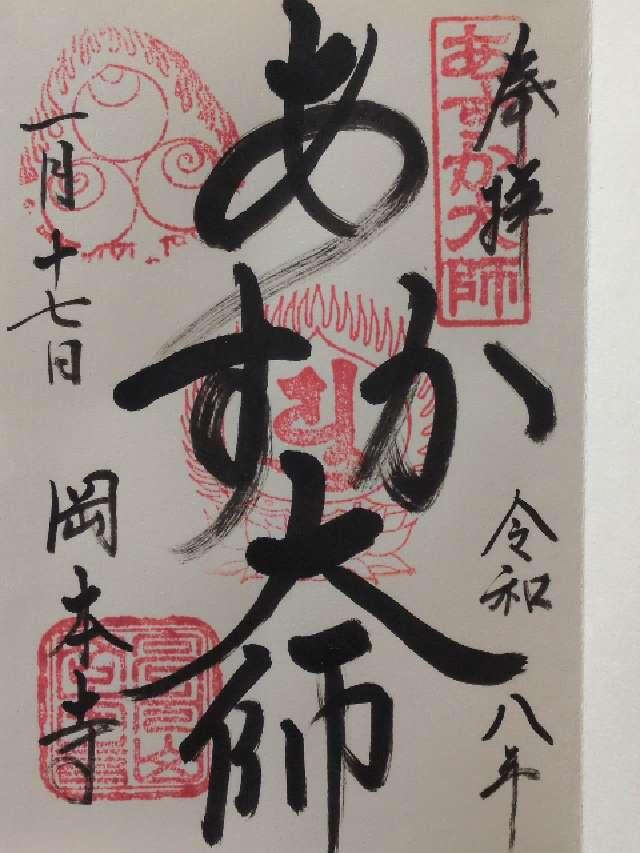 奉拝
あすか大師
令和八年
あすか大師
一月十七日
岡本寺